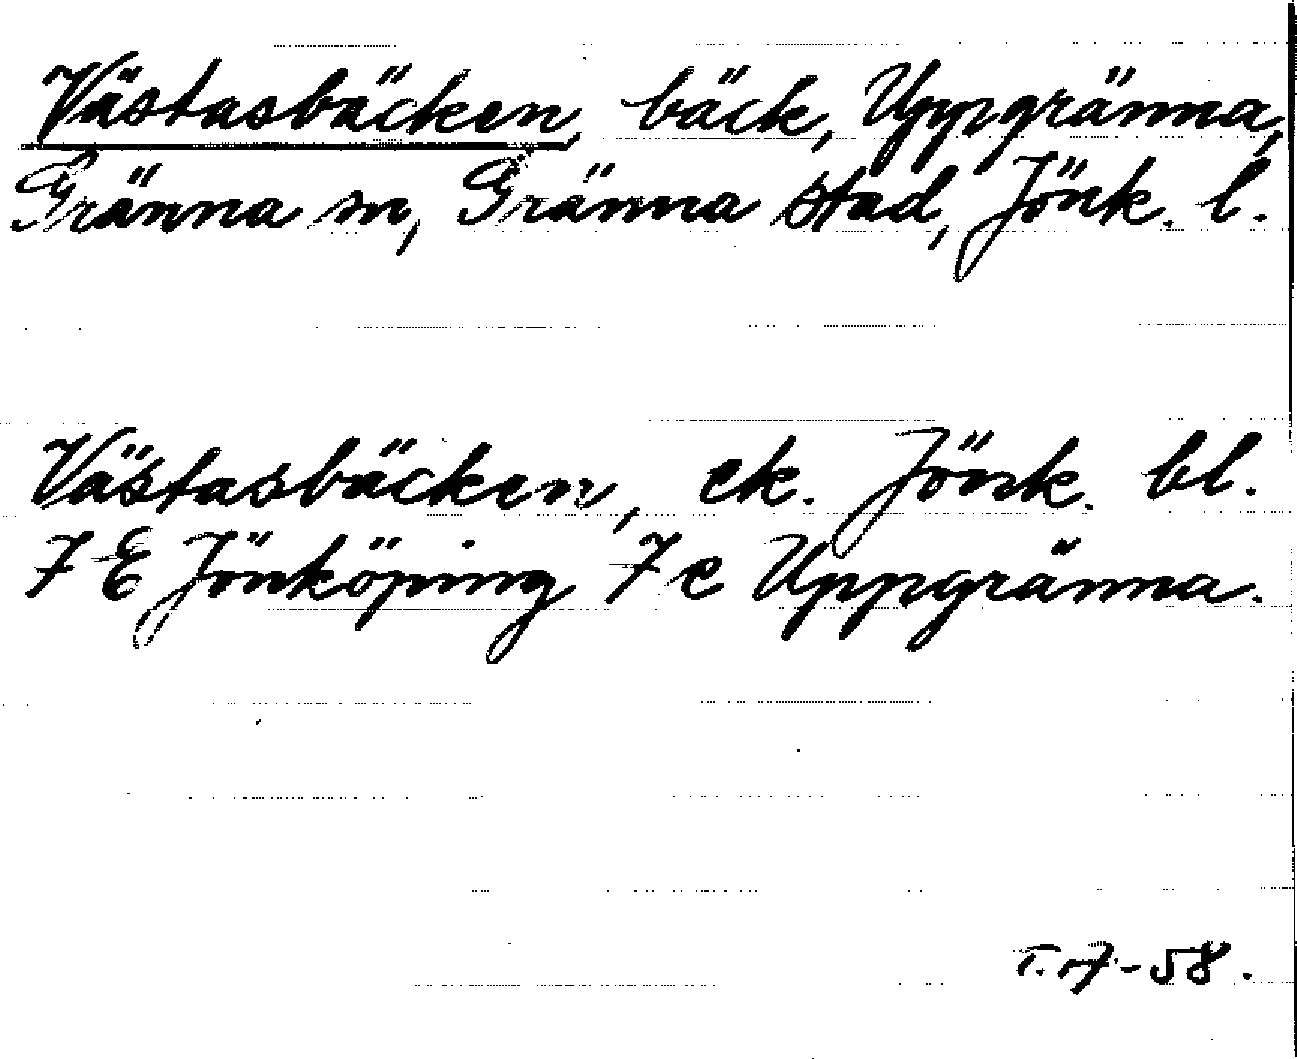 Västasbäcken, bäck, Uppgränna,
Gränna sn, Gränna stad, Jönk. l.
Västasbäcken, ek. Jönk. bl.
7 E Jönköping 7 e Uppgränna.